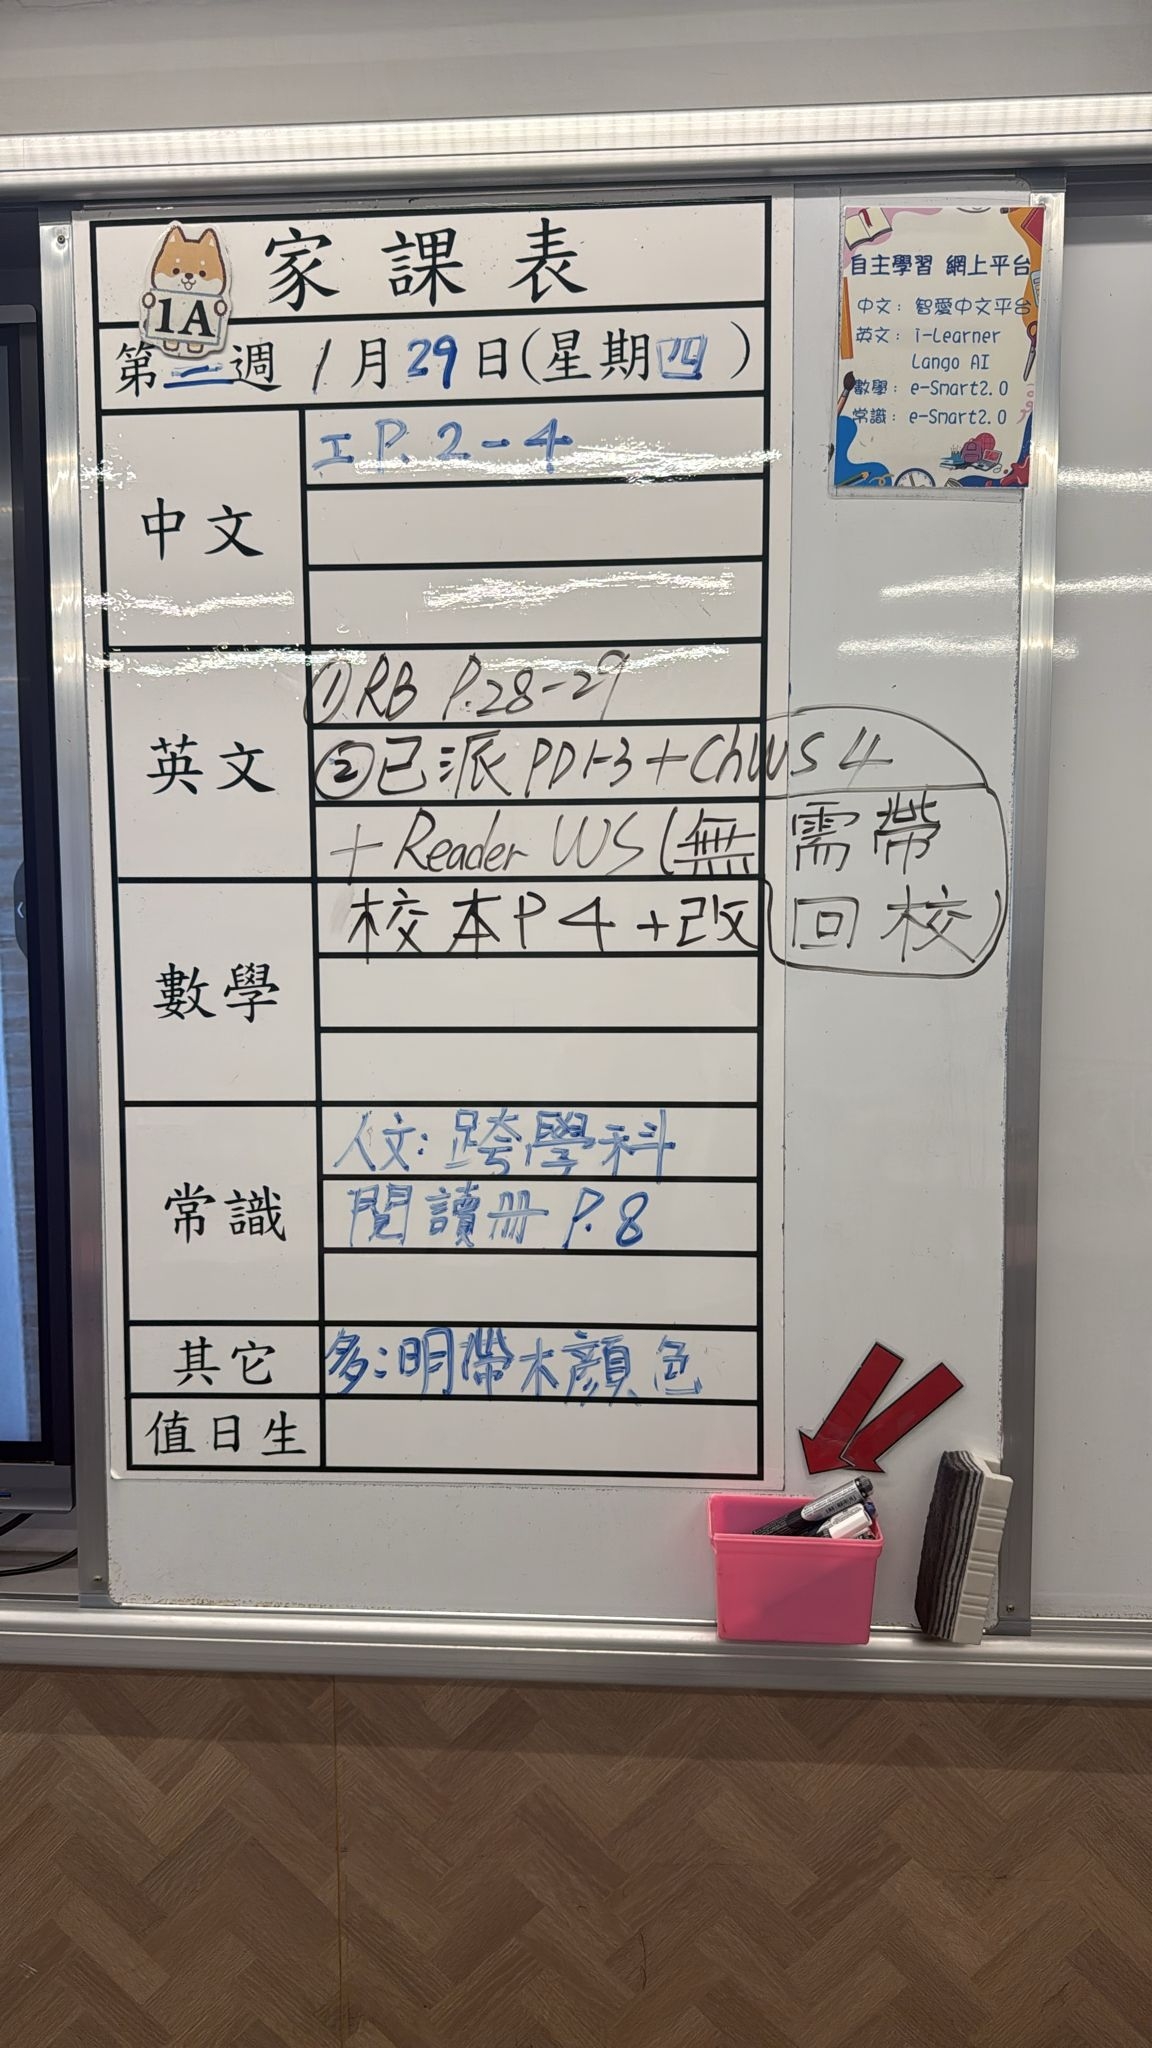 家課表
1A
第二週 1月29日(星期四)
中文
工 P. 2-4
英文
①RB P.28-29
②已派 PD1-3+ChWS 4
+ Reader WS (無需帶
回校)
數學
校本P4+改
常識
人文: 跨學科
閱讀冊 P. 8
其它
多:明帶木顏色
值日生
自主學習 網上平台
中文: 智愛中文平台
英文: i-Learner
Lango AI
數學: e-Smart2.0
常識: e-Smart2.0